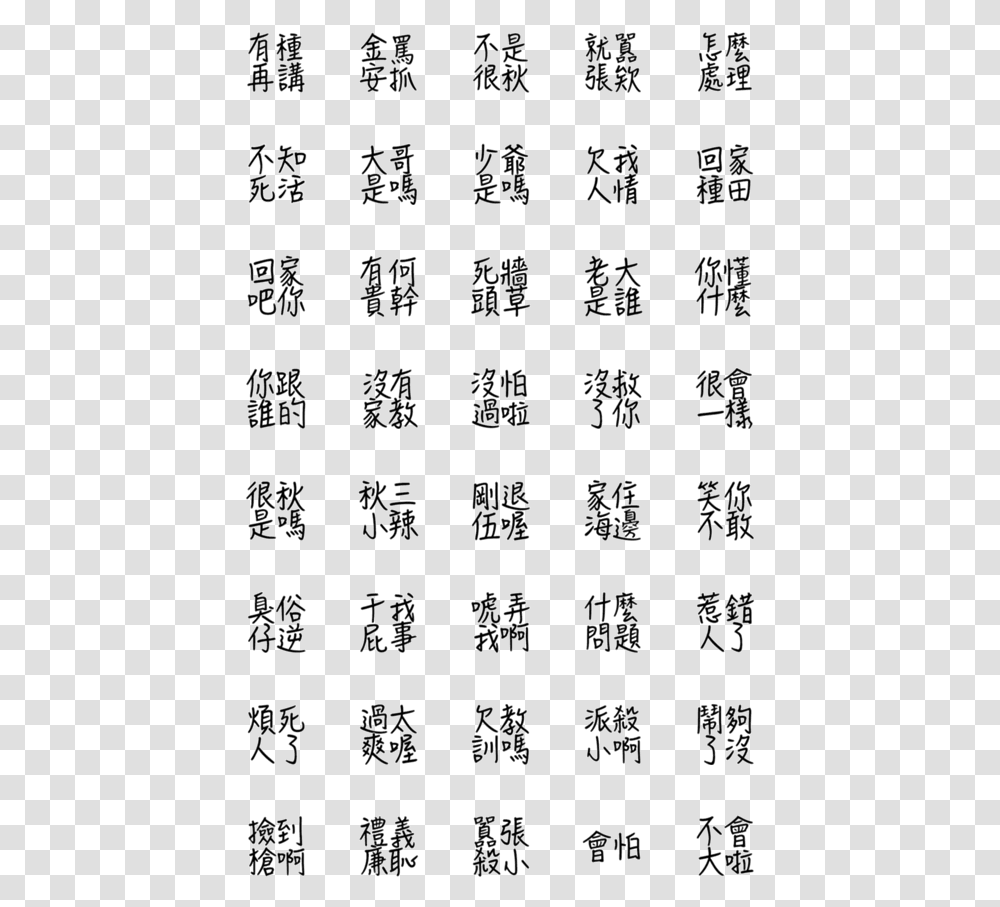 有種
再講
金罵
安抓
不是
很秋
就囂
張欸
怎麼
處理
不知
死活
大哥
是嗎
少爺
是嗎
欠我
人情
回家
種田
回家
吧你
有何
貴幹
死牆
頭草
老大
是誰
你懂
什麼
你跟
誰的
沒有
家教
沒怕
過啦
沒救
了你
很會
一樣
很秋
是嗎
秋三
小辣
剛退
伍喔
家住
海邊
笑你
不敢
臭俗
仔逆
干我
屁事
唬弄
我啊
什麼
問題
惹錯
人了
煩死
人了
過太
爽喔
欠教
訓嗎
派殺
小啊
鬧夠
了沒
撿到
槍啊
禮義
廉恥
囂張
殺小
會怕
不會
大啦